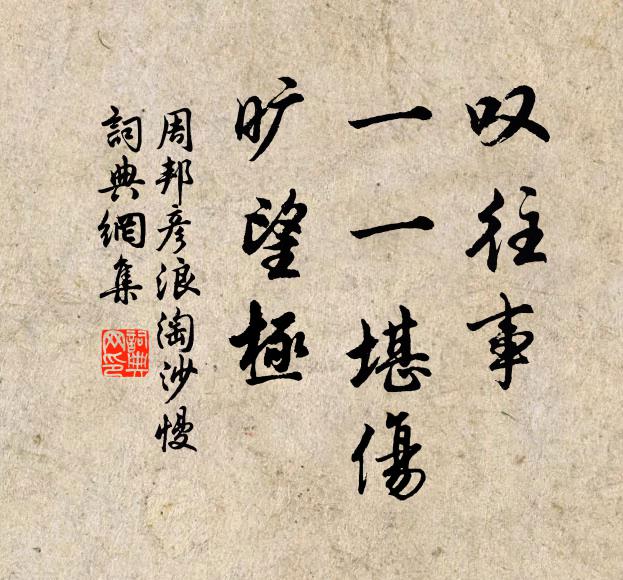 叹往事
一一堪傷
旷望極
周邦彦浪淘沙慢
詞典網集
詞典网印